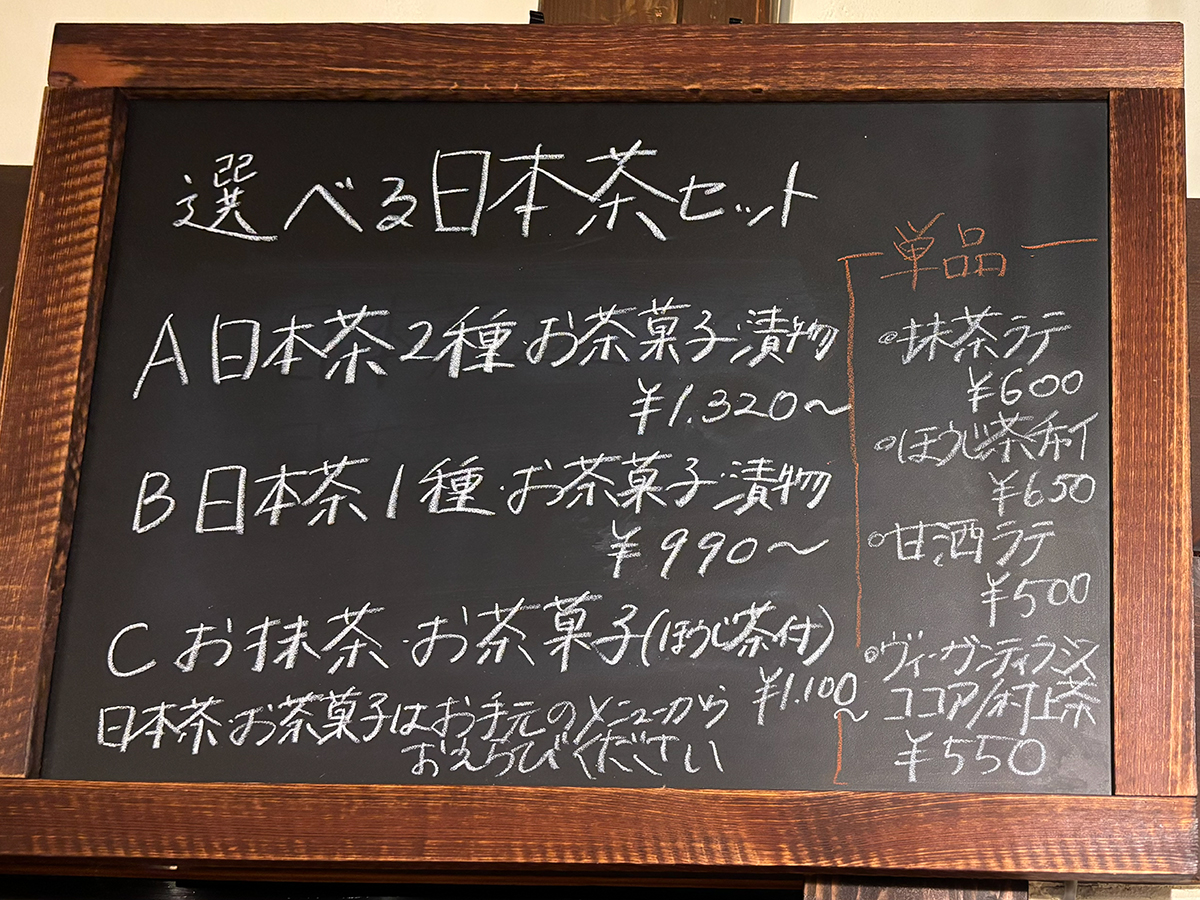 選べる日本茶セット
A 日本茶2種・お茶菓子・漬物
¥1.320〜
B 日本茶1種・お茶菓子・漬物
¥990〜
C お抹茶・お茶菓子(ほうじ茶付)
¥1.100〜
日本茶・お茶菓子はお手元のメニューから
おえらびください
単品
◦抹茶ラテ
¥600
◦ほうじ茶チャイ
¥650
◦甘酒ラテ
¥500
◦ヴィーガンティラミス
ココア/村上茶
¥550